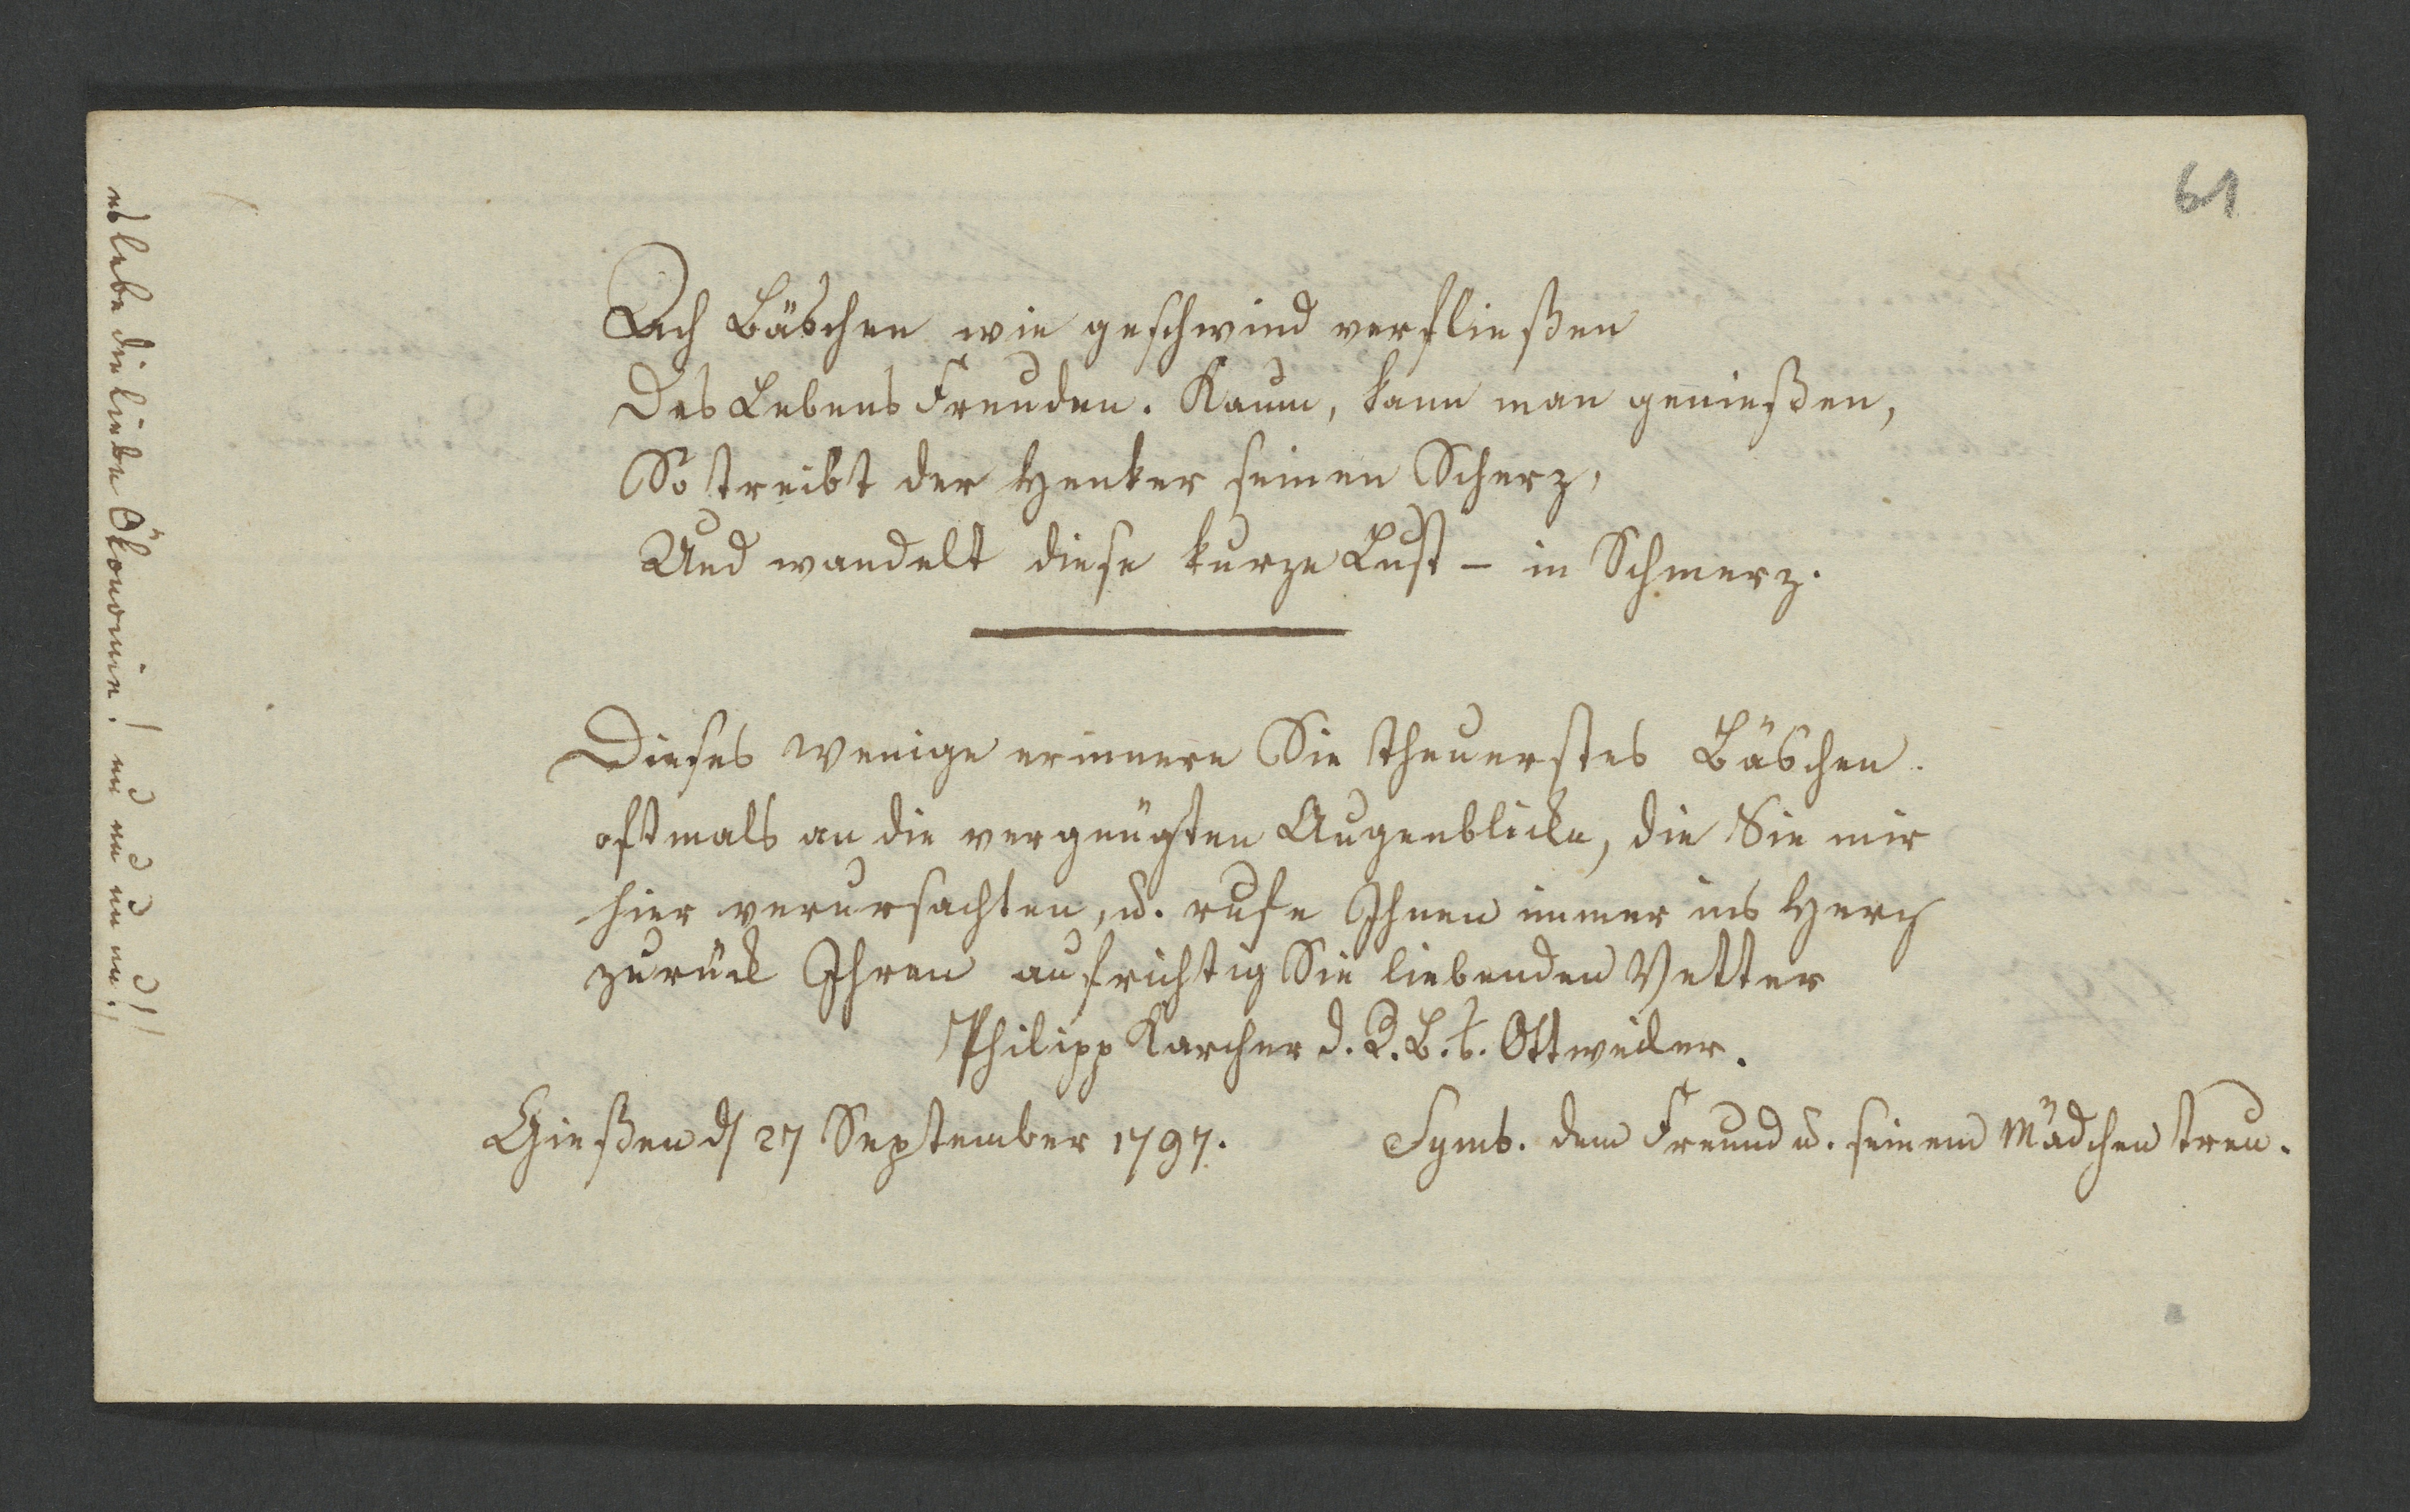 61
Ach Bäschen wie geschwind verfließen
Des Lebens Freuden. Kaum, kann man genießen,
So treibt der Henker seinen Scherz,
Und wandelt diese kurze Lust – in Schmerz.
Dieses wenige erinnere Sie theuerstes Bäschen.
oftmals an die vergnügten Augenblicke, die Sie mir
hier verursachten, u. rufe Ihnen immer ins Herz
zurück Ihren aufrichtig Sie liebenden Vetter
Philipp Karcher d. R. B. b. Ottweiler.
Gießen d 27 September 1797.
Symb. dem Freund u. seinem Mädchen treu.
es lebe die liebe Ökonomie!